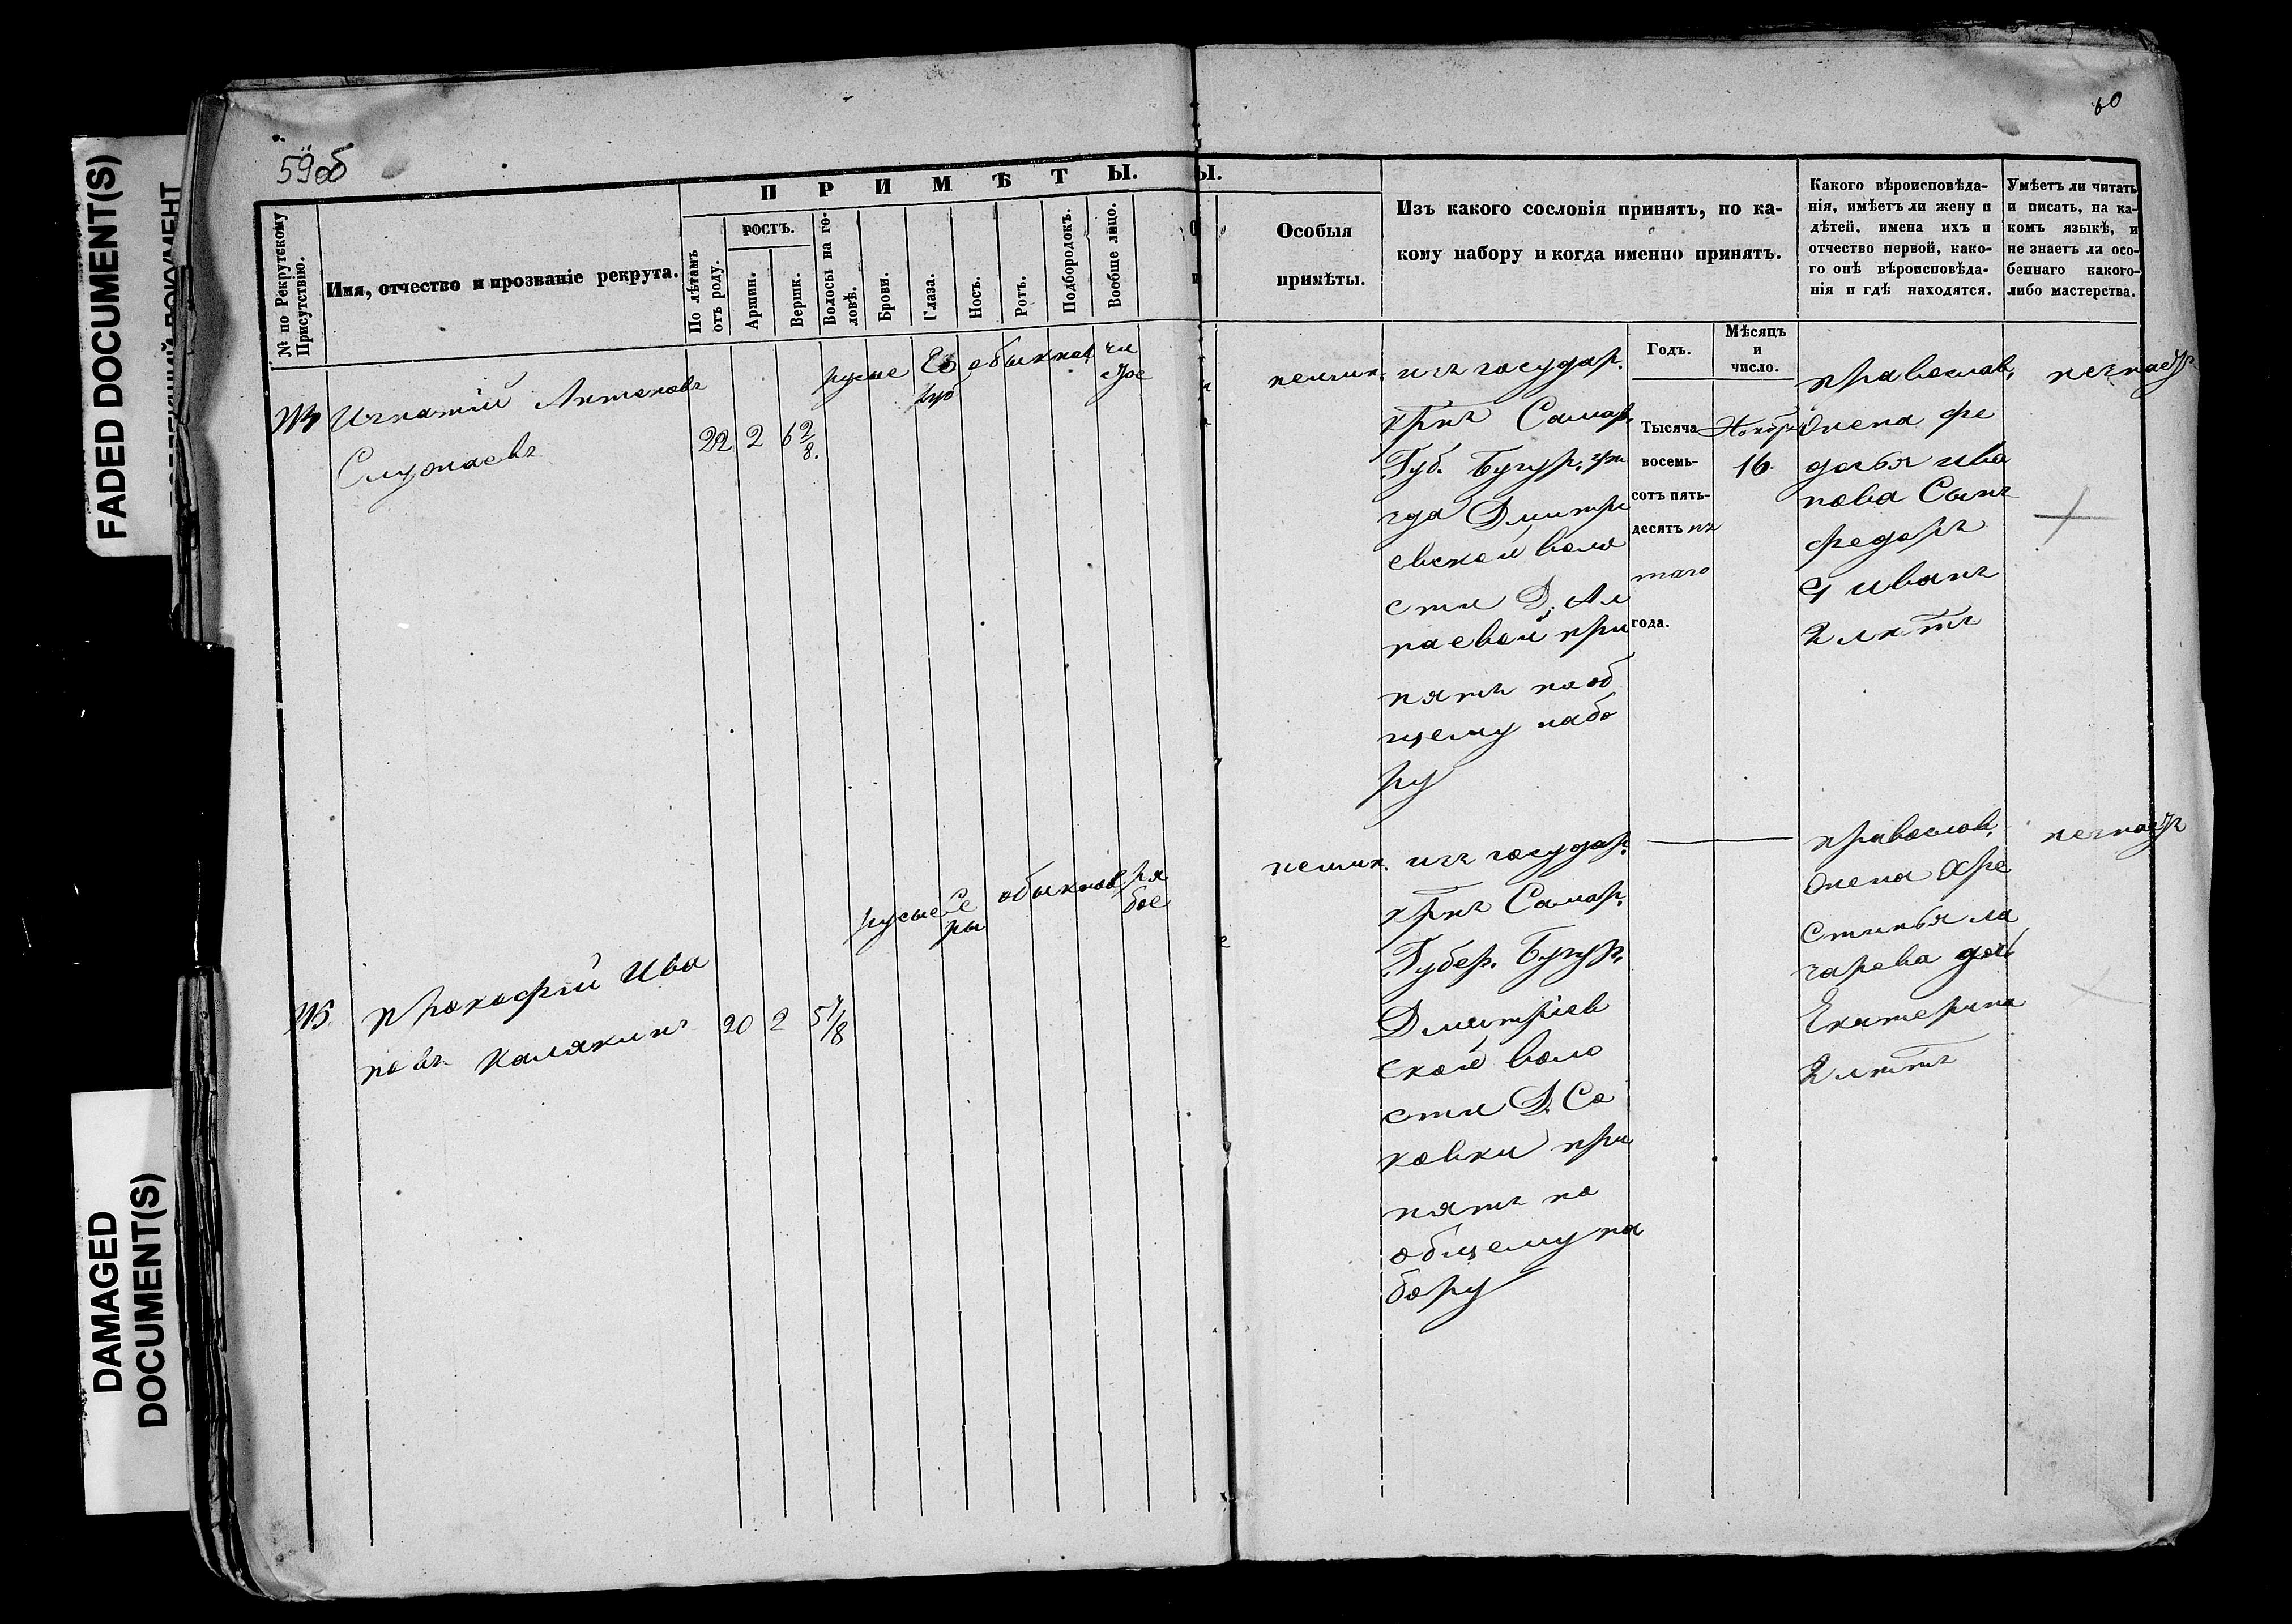 FADED DOCUMENT(S)
DAMAGED
DOCUMENT(S)
59об
60
ПРИМѢТЫ.
Ы.
№ по Рекрутскому
Присутствію.
Имя, отчество и прозваніе рекрута.
По лѣтамъ
отъ роду.
РОСТЪ.
Аршин.
Вершк.
Волосы на го-
ловѣ.
Брови.
Глаза.
Носъ.
Ротъ.
Подбородокъ.
Вообще лицо.
Особыя
примѣты.
Изъ какого сословія принятъ, по ка-
кому набору и когда именно принятъ.
Какого вѣроисповѣда-
нія, имѣетъ ли жену и
дѣтей, имена ихъ и
отчество первой, како-
го онѣ вѣроисповѣда-
нія и гдѣ находятся.
Умѣетъ ли читать
и писать, на ка-
комъ языкѣ, и
не знаетъ ли осо-
беннаго какого-
либо мастерства.
Годъ.
Мѣсяцъ
и
число.
Игнатій Антоновъ
22 2 6 2/8.
русые
обыкнов
чи
стое
неимѣ.
изъ государ.
крнъ Самар.
Губ. Бугур. уѣ
зда Дмитрі
евской воло
сти Д.
паевой при
нятъ по об
щему набо
ру
Тысяча
восемь-
сотъ пять-
десятъ пя
таго
года.
Ноября
16.
православ.
Жена Фе
досья Ива
нова Сынъ
Федоръ
Иванъ
2 лѣтъ
незнаетъ
Прокофій Ива
новъ Калякинъ
20 2 5 7/8
русые
сѣ
ры
обыкнов
ря
бое
неимѣ.
изъ государ.
крнъ Самар.
Губер. Бугур.
Дмитріев
ской воло
сти Д. Со
ковки при
нятъ по
общему на
бору
православ.
Жена Хре
стинья Ла
зарева дочь
Екатерина
2 лѣтъ
незнаетъ